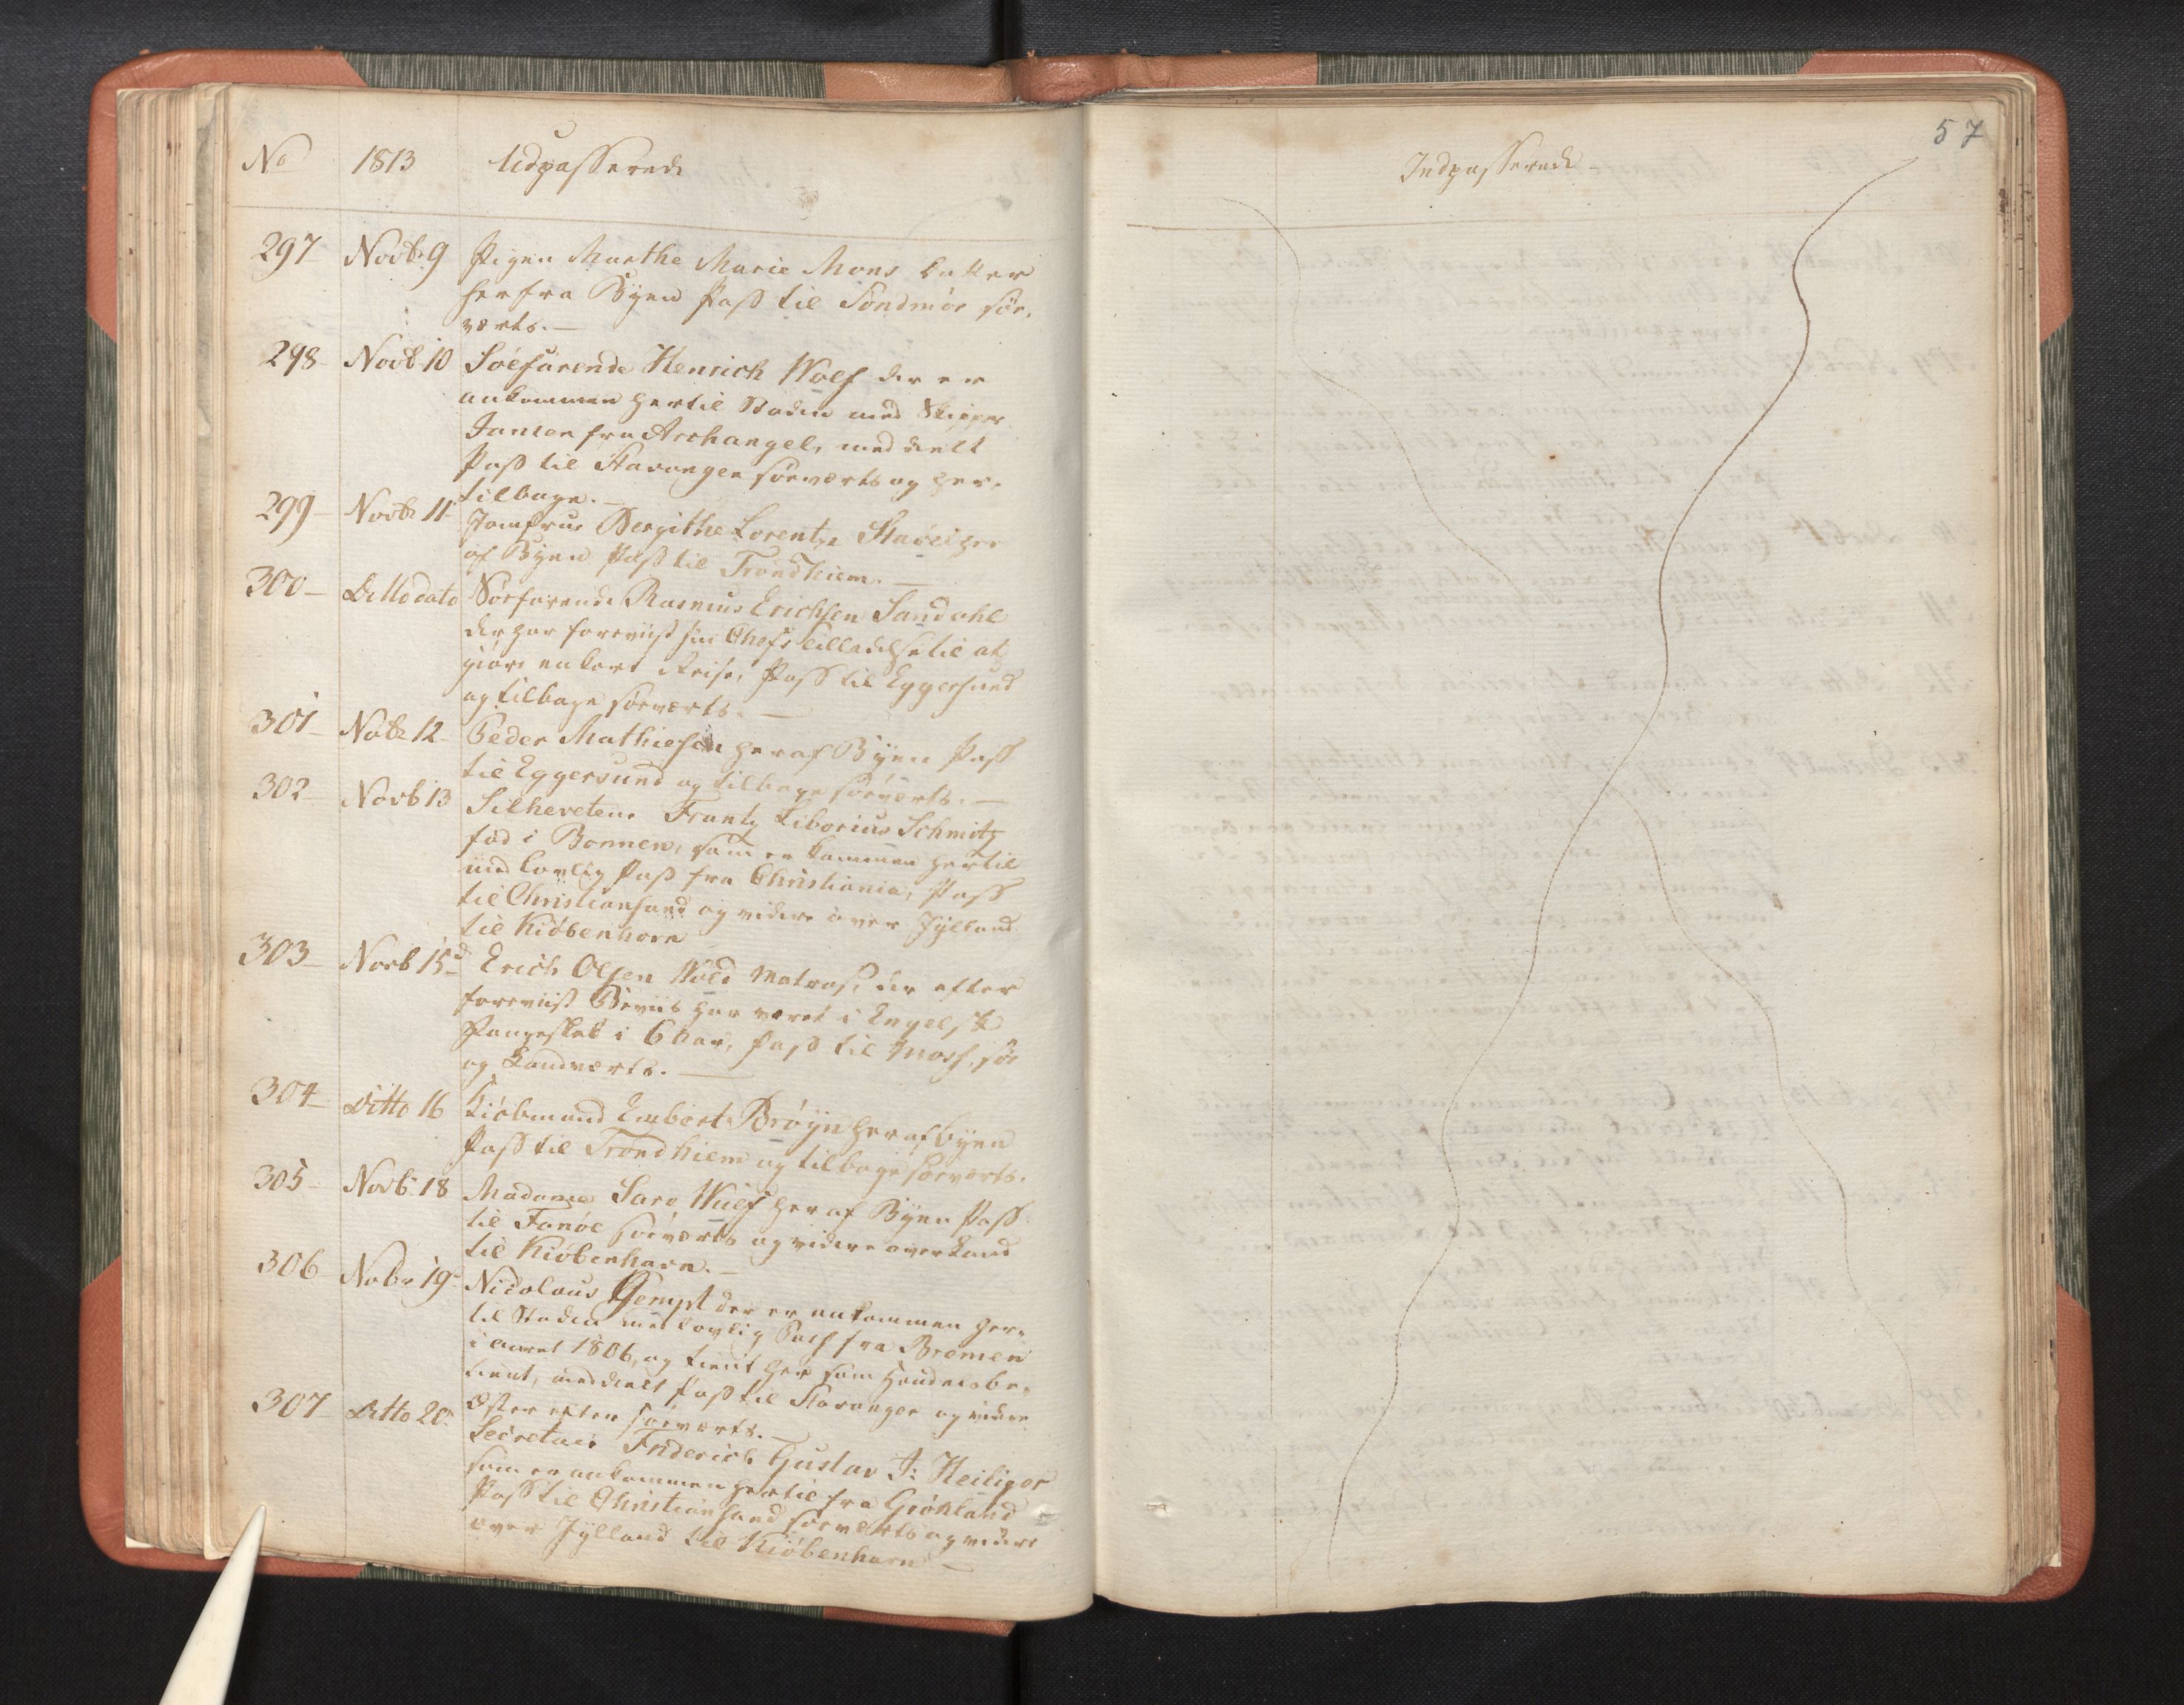 No 1813 Udpasserede
297 Novb: 9 Pigen Marthe Marie Mons Datter
herfra Byen Pass til Søndmör söe,
værts.—
298 Novb: 10 Söefarende Henrich Wolf der er
ankommen hertil Staden med Skipper
Jansen fra Archangel, meddeelt
Pass til Stavanger söeværts og her,
tilbage.—
299 Novbr 11 Jomfrue Bergithe Lorentze her
af Byen Pass til Trondhiem.—
300 Ditto dato Söefarende Rasmus Erichsen Sandahl
der har foreviist sin Chefs tilladelse til at
giöre en kort Reise, Pass til Eggersund
og tilbage söeværts.—
301 Nobr 12 Peder Mathiesen her af Byen Pass
til Eggersund og tilbage söeværts.—
302 Novb 13 Frantz Liborius Schmitz
föd i Bonnen, som er kommen hertil
med lovlig Pass fra Christiania, Pass
til Christiansand og videre over Jylland
til Kiöbenhavn
303 Novb 15d Erich Olsen Wold Matros, der efter
foreviist Beviis har været i Engelsk
Fangeskab i 6 Aar, Pass til Moss, söe
og Landværts.—
304 Ditto 16 Kiöbmand Embert Bröyn her af byen
Pass til Trondhiem og tilbage söeværts.
305 Novb: 18 Madame Sara Wulf her af Byen Pass
til Fanöe söeværts og videre over Land
til Kiöbenhavn.—
306 Nobr 19 Nicolaus Gempt der er ankommen her,
til Staden med lovlig Pass fra Bremen
i Aaret 1806, og tient her som Handelsbe,
tient, meddeelt Pass til Stavanger og videre
Öster efter söeværts.—
307 Ditto 20 Secretair Friderich Gustav J: Heiliger
som er ankommen hertil fra Grönland
Pass til Christiansand söeværts og videre
over Jylland til Kiöbenhavn—
57
Indpasserede